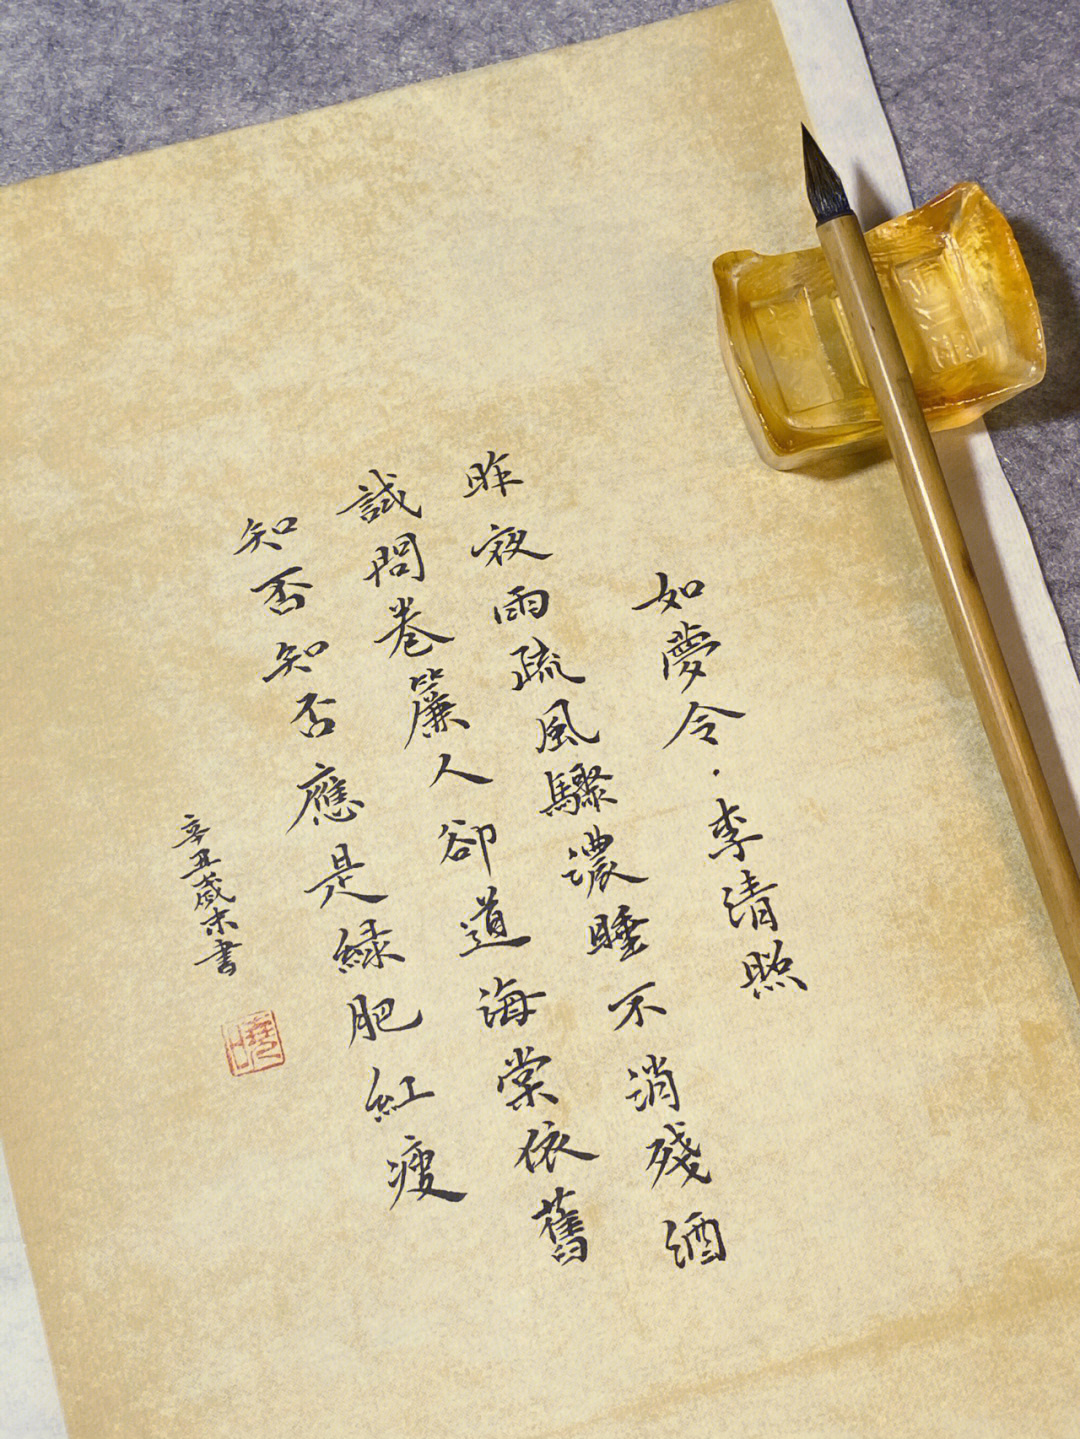 如夢令·李清照
昨夜雨疏風驟濃睡不消殘酒
試問卷簾人卻道海棠依舊
知否知否應是綠肥紅瘦
辛丑歲末書